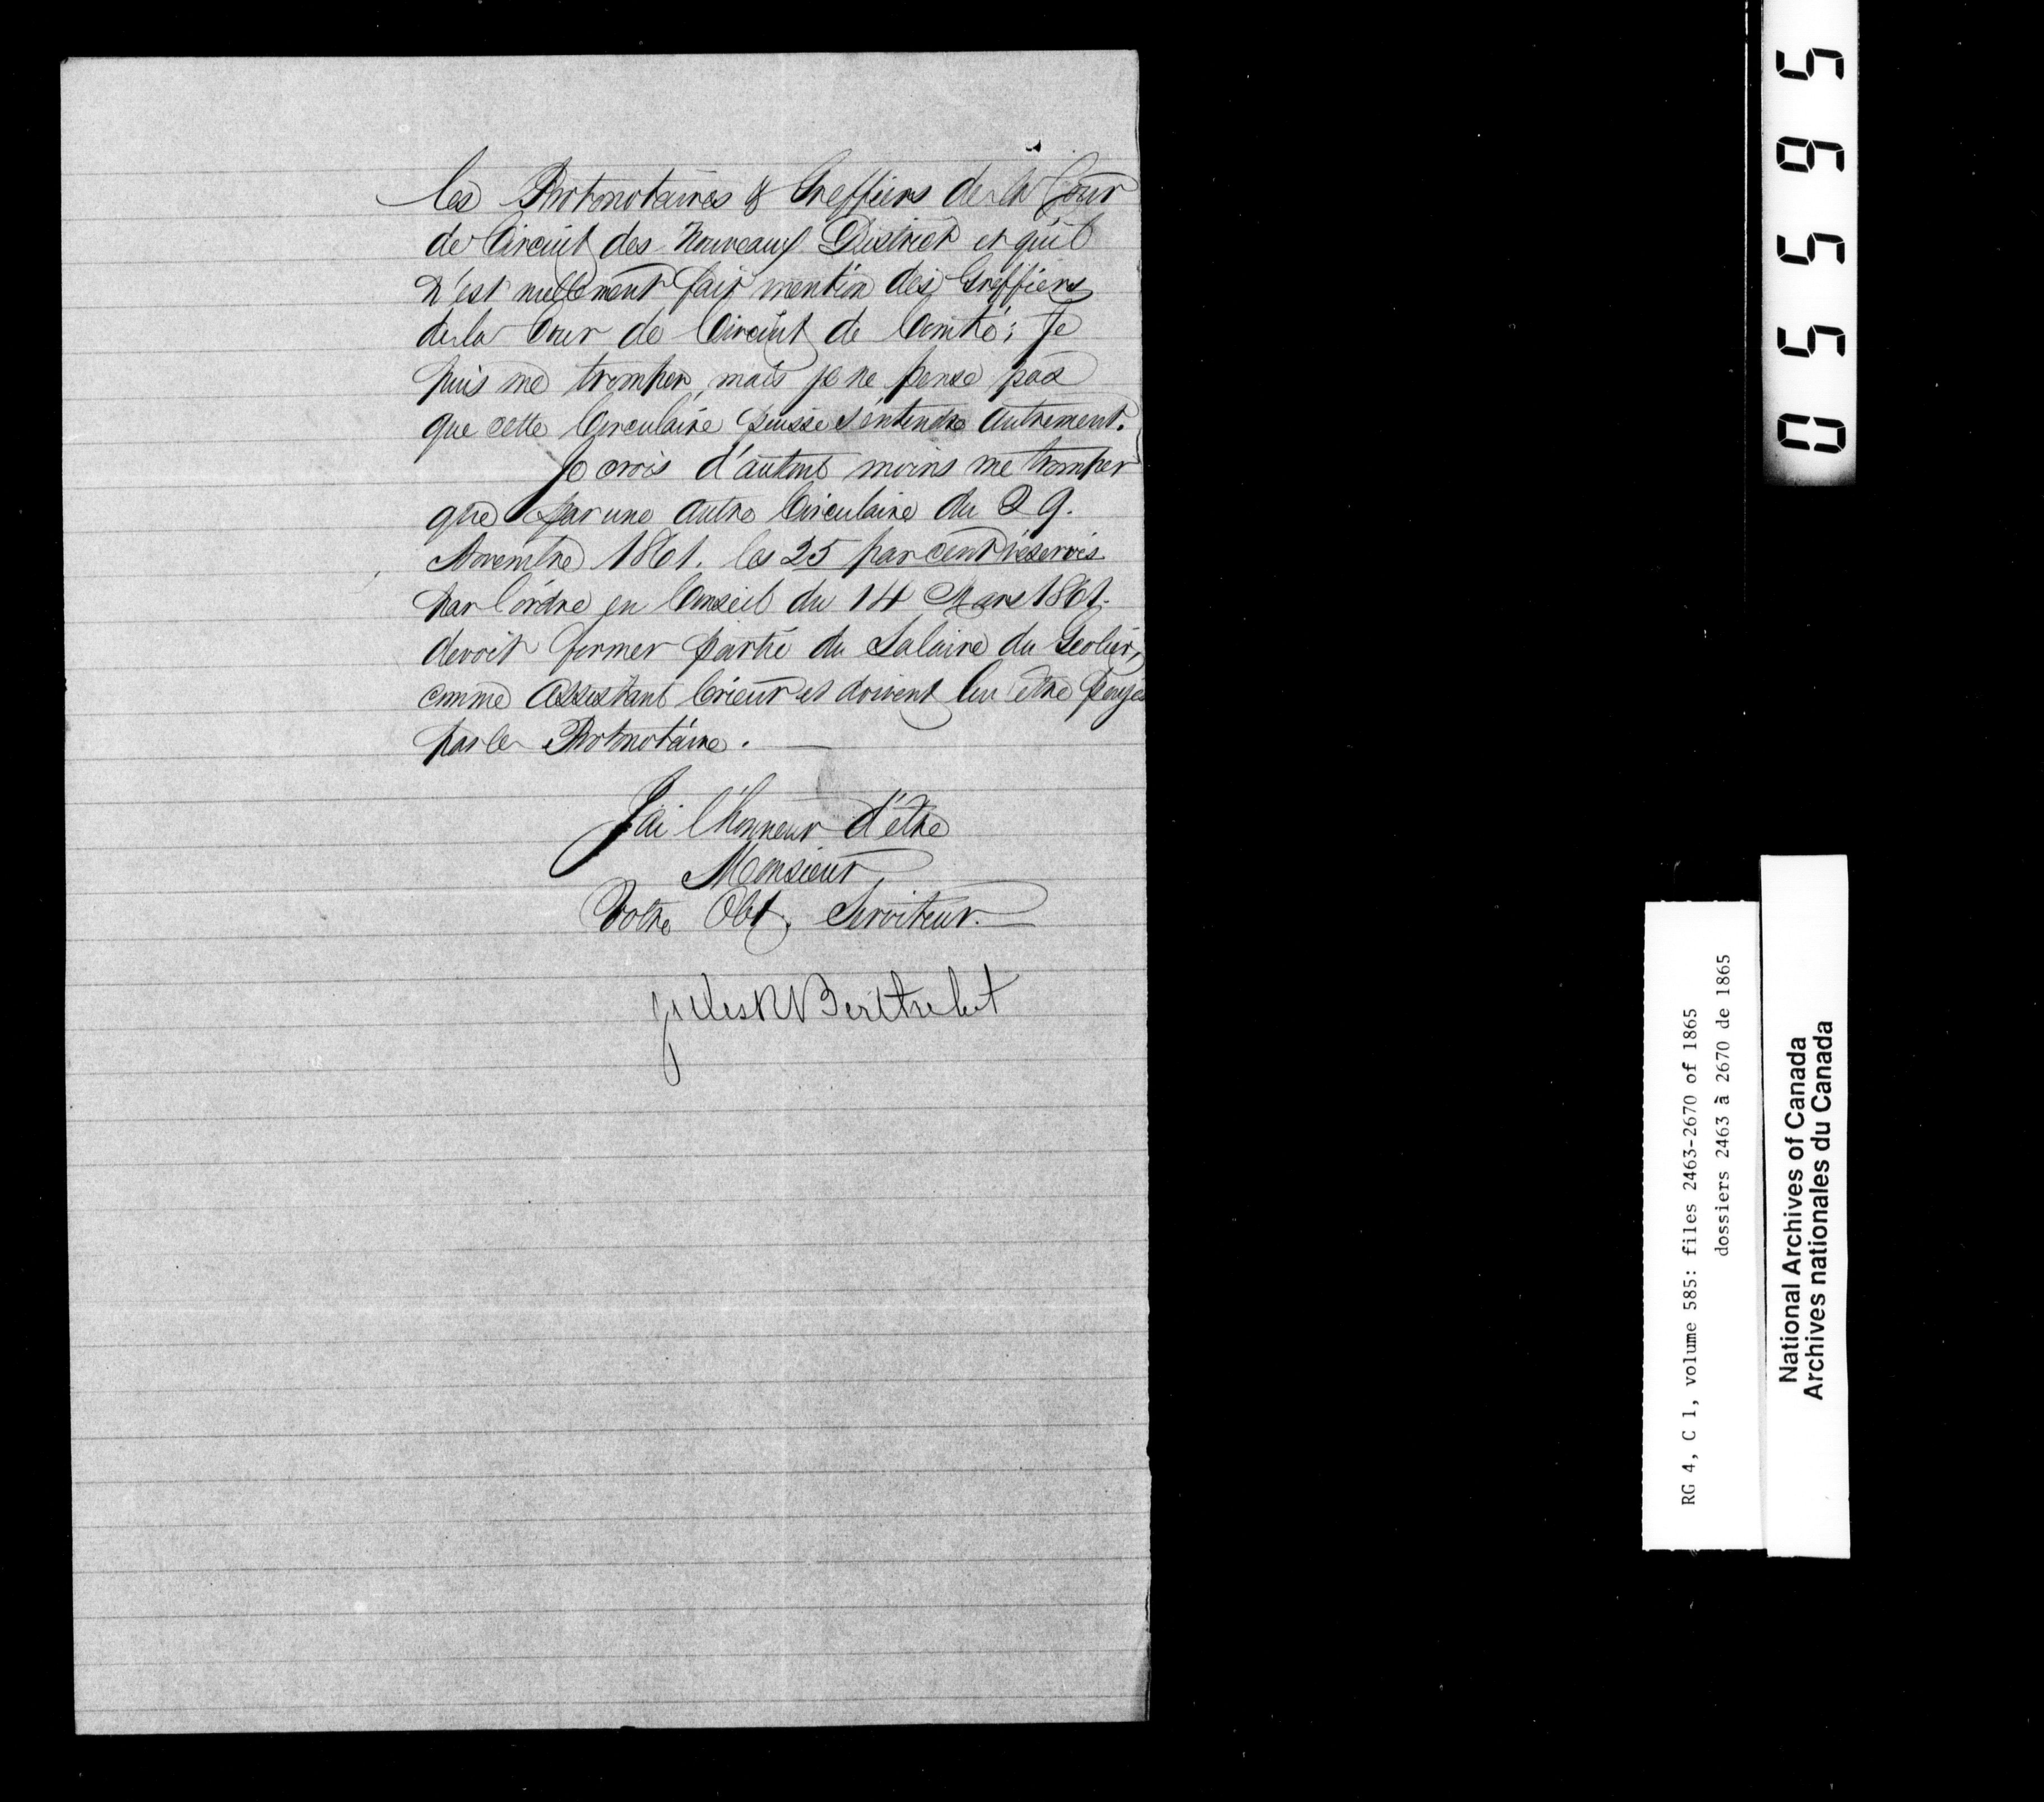 les Protonotaires & Greffiers de la Cour
de Circuit des Nouveaux District et qu'il
n'est nullement fait mention des Greffiers
de la Cour de Circuit de Comté; Je
puis me tromper, mais je ne pense pas
que cette Circulaire puisse s'entendre autrement.
Je crois d'autant moins me tromper
que par une autre Circulaire du 29.
Novembre 1861. les 25 par cent réservés
par l'ordre en Conseil du 14 Mars 1861.
devoit former partie du Salaire du Geolier,
comme Assistant Crieur et doivent lui être payés
par le Protonotaire.
J'ai l'honneur d'être
Monsieur
Votre Obt. Serviteur.
Jules R Berthelot
05595
RG 4, C 1, volume 585: files 2463-2670 of 1865
dossiers 2463 à 2670 de 1865
National Archives of Canada
Archives nationales du Canada